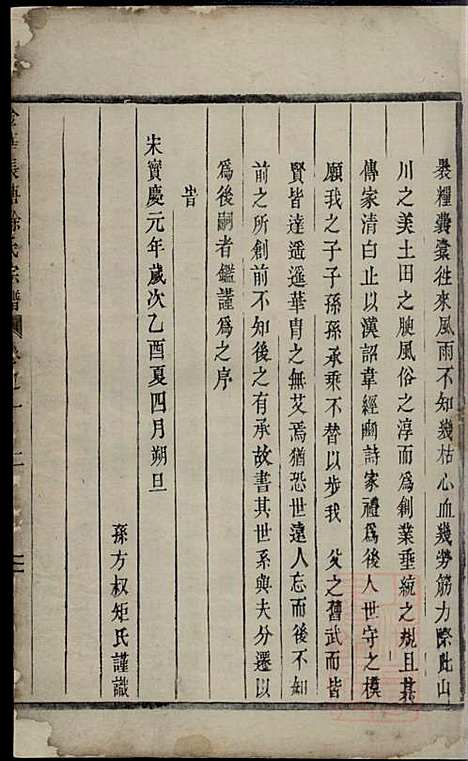 裹糧囊橐往來風雨不知幾枯心血幾勞筋力際此山
川之美土田之腴風俗之淳而爲創業垂統之規且其
傳家清白止以漢詔韋經關詩家禮爲後人世守之模
願我之子子孫孫承乘不替以步我 父之舊武而皆
賢皆達遥遥華胄之無艾焉猶恐世遠人忘而後不知
前之所創前不知後之有承故書其世系與夫分遷以
爲後嗣者鑑謹爲之序
旹
宋寶慶元年歲次乙酉夏四月朔旦
孫方权矩氏謹識
氏宗譜